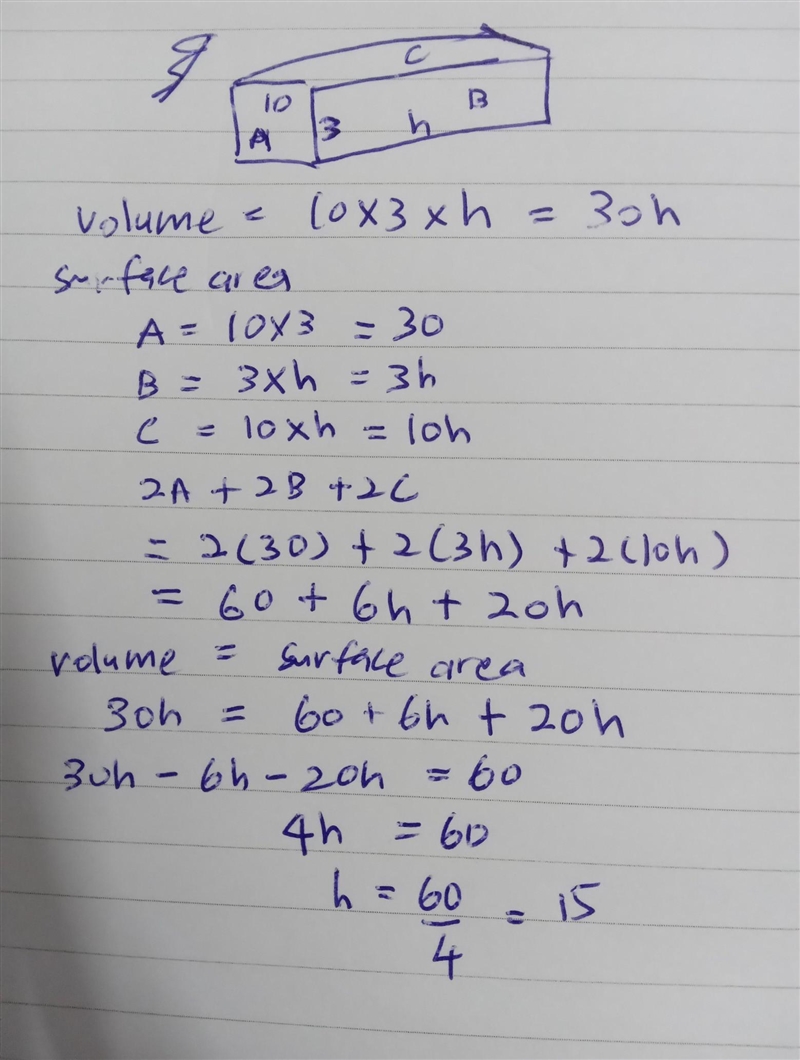 C
10 B
A 3 h
volume = 10 x 3 x h = 30h
surface area
A = 10x3 = 30
B = 3xh = 3h
C = 10xh = 10h
2A + 2B + 2C
= 2(30) + 2(3h) + 2(10h)
= 60 + 6h + 20h
volume = surface area
30h = 60 + 6h + 20h
30h - 6h - 20h = 60
4h = 60
h = 60/4 = 15